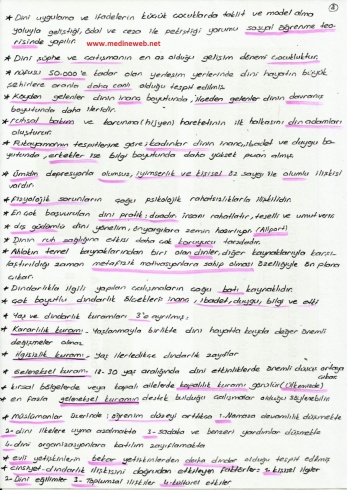 ③
* Dini uygulama ve ifadelerin küçük çocuklarda taklit ve model alma
yoluyla geliştiği, ödül ve ceza ile pekiştiği yorumu sosyal öğrenme teo-
risinde yapılır.
www.medineweb.net
* Dini şüphe ve çatışmanın en az olduğu gelişim dönemi çocukluktur.
* nüfusu 50.000'e kadar olan yerleşim yerlerinde dini hayatın büyük
şehirlere oranla daha canlı olduğu tespit edilmiş
* Köyden gelenler dinin inanç boyutunda, ilçeden gelenler dinin davranış
boyutunda daha ileridir.
* ruhsal bakım ve korunma (hijyen) hareketinin ilk halkasını din adamları
oluşturur.
* tespitlerine göre; kadınlar dinin inanç, ibadet ve duygu bo-
yutunda, erkekler ise bilgi boyutunda daha yüksek puan almış.
* Ümidin depresyonla olumsuz, iyimserlik ve kişisel öz saygı ile olumlu ilişkisi
vardır.
* fizyolojik sorunların çoğu psikolojik rahatsızlıklarla ilişkilidir.
* En çok başvurulan dini pratik: duadır. insanı rahatlatır, teselli ve umut verir.
* dış güdümlü dini yönelim, önyargılara zemin hazırlıyor (Allport)
* Dinin ruh sağlığına etkisi daha çok koruyucu tarzdadır.
* Ahlakın temel kaynaklarından biri olan dinler, diğer kaynaklarıyla karşı-
laştırıldığı zaman metafizik motivasyonlara sahip olması özelliğiyle ön plana
çıkar.
* Dindarlıkla ilgili yapılan çalışmaların çoğu batı kaynaklıdır.
* çok boyutlu dindarlık ölçekleri: inanç, ibadet, duygu, bilgi ve etki
* Yaş ve dindarlık kuramları 3'e ayrılmış:
* Kararlılık kuramı: Yaşlanmayla birlikte dini hayatta kayda değer önemli
değişmeler olmaz.
* ilgisizlik kuramı: Yaş ilerledikçe dindarlık zayıflar
* Geleneksel kuram: 18-30 yaş aralığında dini etkinliklerde önemli düşüş ortaya
çıkar.
* kırsal bölgelerde veya kapalı ailelerde kararlılık kuramı görülür (ülkemizde)
* en fazla geleneksel kuramın destek bulduğu çalışmalar olduğu söylenebilir
* müslümanlar üzerinde: öğrenim düzeyi arttıkça 1. Namaza devamlılık düşmekte
2- dini ilkelere uyma azalmakta 3- sadaka ve benzeri yardımlar düşmekte
4- dini organizasyonlara katılım zayıflamakta
* evli yetişkinlerin bekar yetişkinlerden daha dindar olduğu tespit edilmiş
* cinsiyet-dindarlık ilişkisini doğrudan etkileyen faktörler: 1. kişisel ilgiler
2- Dini eğilimler 3- Toplumsal ilişkiler 4. kültürel etkiler